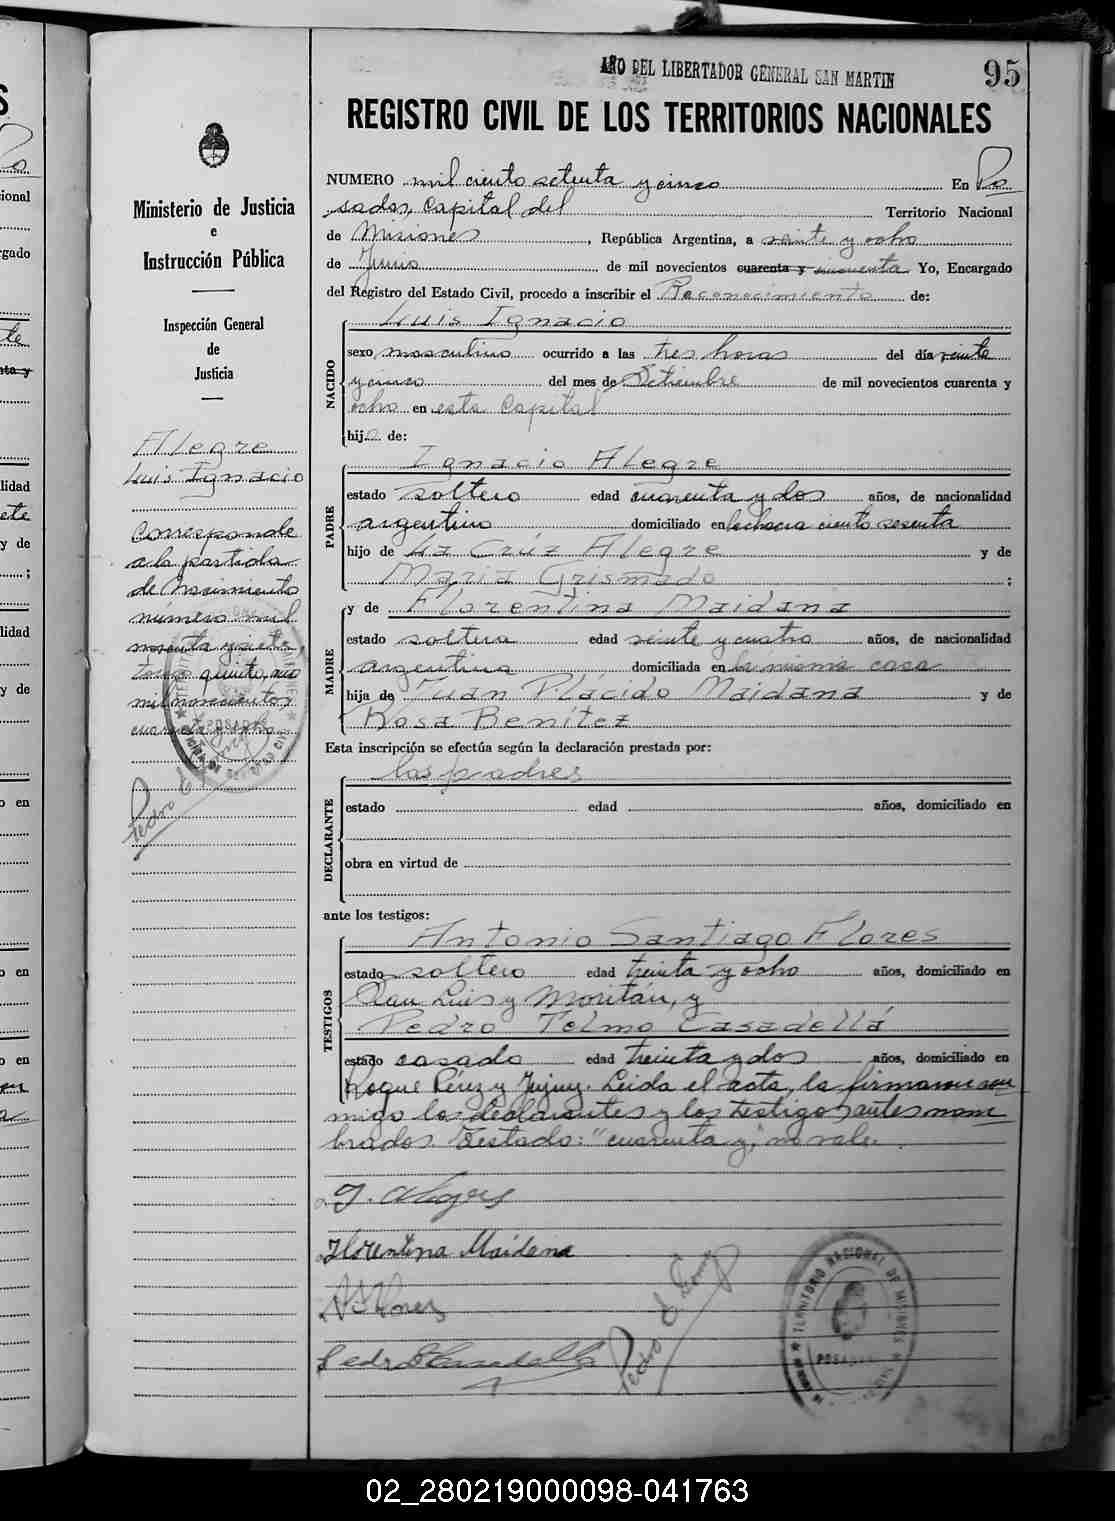 AÑO DEL LIBERTADOR GENERAL SAN MARTIN
95
REGISTRO CIVIL DE LOS TERRITORIOS NACIONALES
Ministerio de Justicia
e
Instrucción Pública
Inspección General
de
Justicia
Alegre
Luis Ignacio
Corresponde
a la partida
de Nacimiento
número mil
tomo quinto, año
mil novecientos
cuarenta y ocho
NUMERO mil ciento setenta y cinco En Po
sadas, Capital del Territorio Nacional
de Misiones, República Argentina, a veinte y ocho
de Junio de mil novecientos cuarenta y cincuenta Yo, Encargado
del Registro del Estado Civil, procedo a inscribir el Reconocimiento de:
NACIDO
Luis Ignacio
sexo masculino ocurrido a las tres horas del día veinte
y cinco del mes de Setiembre de mil novecientos cuarenta y
ocho en esta Capital
hijo de:
PADRE
Ignacio Alegre
estado soltero edad cuarenta y dos años, de nacionalidad
argentino domiciliado en chacra ciento sesenta
hijo de La Crúz Alegre y de
María Grismado ;
MADRE
y de Florentina Maidana
estado soltera edad veinte y cuatro años, de nacionalidad
argentina domiciliada en la misma casa
hija de Juan Plácido Maidana y de
Rosa Benítez
Esta inscripción se efectúa según la declaración prestada por:
DECLARANTE
los padres
estado edad años, domiciliado en
obra en virtud de
ante los testigos:
TESTIGOS
Antonio Santiago Flores
estado soltero edad treinta y ocho años, domiciliado en
San Luis y Moritán, y
Pedro Telmo Casadellá
estado casado edad treinta y dos años, domiciliado en
Roque Pérez y Jujuy. Leida el acta, la firmaron con
migo los declarantes y los testigos antes nom
brados. Testado: "cuarenta y", no vale.
Florentina Maidana
TERRITORIO NACIONAL DE MISIONES
POSADAS
02_280219000098-041763